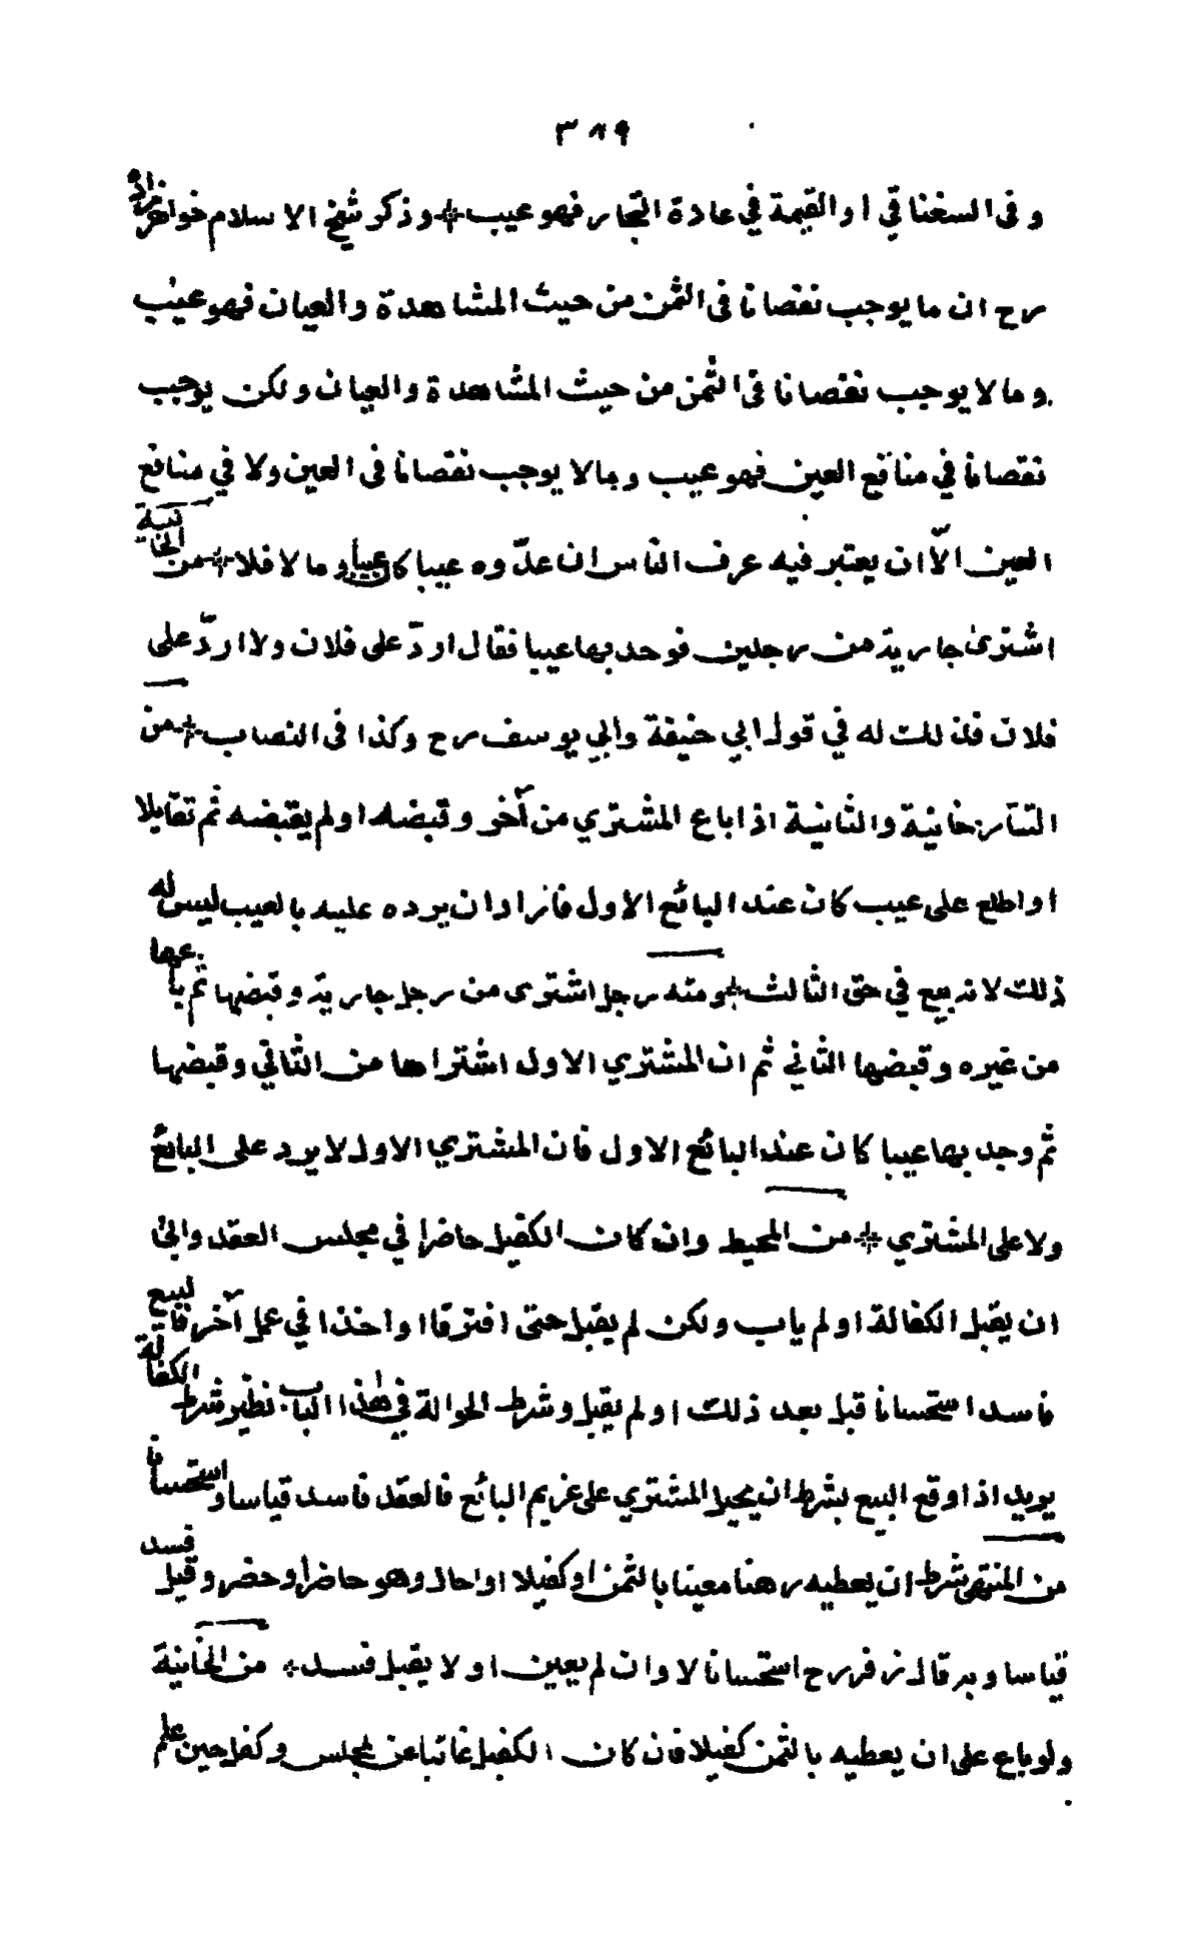 ٣٨٩
وفى السغناقي او القيمة في عادة التجار فهو عيب * وذكر شيخ الاسلام خواهرزاده
رح ان ما يوجب نقصانا فى الثمن من حيث المشاهدة والعيان فهو عيب
وما لا يوجب نقصانا فى الثمن من حيث المشاهدة والعيان ولكن يوجب
نقصانا في منافع العين فهو عيب وما لا يوجب نقصانا فى العين ولا في منافع
العين الّا ان يعتبر فيه عرف الناس ان عدّوه عيبا كان عيبا وما لا فلا * من الخانية
اشترى جارية من رجلين فوجد بها عيبا فقال اردّ على فلان ولا اردّ على
فلان فذلك له في قول ابي حنيفة وابي يوسف رح وكذا فى النصاب * من
التتارخانية والثانية اذا باع المشتري من آخر وقبضه او لم يقبضه ثم تقايلا
او اطلع على عيب كان عند البائع الاول فاراد ان يرده عليه بالعيب ليس له
ذلك لانه بيع في حق الثالث * ومنه رجل اشترى من رجل جارية وقبضها ثم باعها
من غيره وقبضها الثاني ثم ان المشتري الاول اشتراها من الثاني وقبضها
ثم وجد بها عيبا كان عند البائع الاول فان المشتري الاول لا يرد على البائع
ولا على المشتري * من المحيط وان كان الكفيل حاضرا في مجلس العقد وابى
ان يقبل الكفالة او لم ياب ولكن لم يقبل حتى افترقا او اخذا في عمل آخر فالبيع
فاسد استحسانا قبل بعد ذلك او لم يقبل وشرط الحوالة في هذا الباب نظير شرط الكفالة
يريد اذا وقع البيع بشرط ان يحيل المشتري على غريم البائع فالعقد فاسد قياسا واستحسانا
من المنتقى شرط ان يعطيه رهنا معينا بالثمن او كفيلا او احال وهو حاضر او حضر وقبل فسد
قياسا وبه قال زفر رح استحسانا لا وان لم يعين او لا يقبل فسد * من الخانية
ولو باع على ان يعطيه بالثمن كفيلا فان كان الكفيل غائبا عن المجلس وكفل حين علم